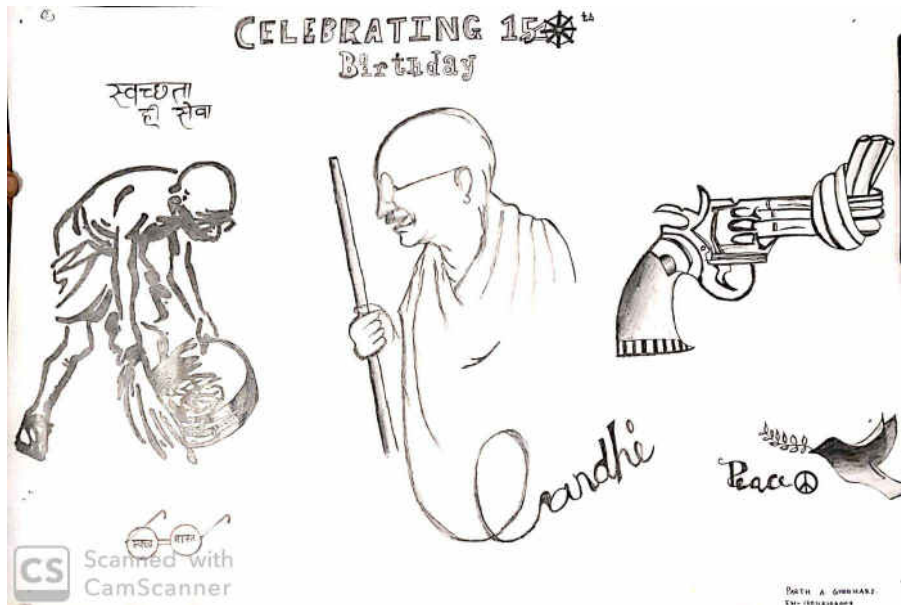 CELEBRATING 150th
Birthday
स्वच्छता
ही सेवा
Gandhi
Peace
स्वच्छ भारत
CS Scanned with
CamScanner
PARTH A